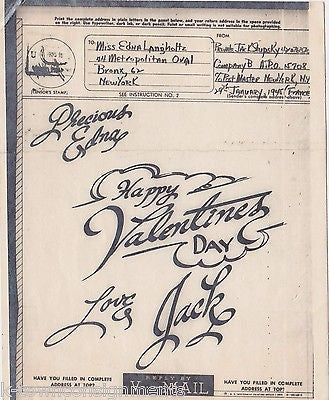 Print the complete address in plain letters in the panel below, and your return address in the space provided on the right. Use typewriter, dark ink, or dark pencil. Faint or small writing is not suitable for photographing.
TO:
Miss Edna Langholtz
Metropolitan Oval
Bronx, 62
New York
FROM
Private Jack
Company B A.P.O. 15708
% Post Master New York, N.Y.
29th January, 1945 France
(CENSOR'S STAMP)
SEE INSTRUCTION NO. 2
(Sender's complete address above)
Precious
Edna
Happy
Valentines
DAY
Love
Jack
HAVE YOU FILLED IN COMPLETE
ADDRESS AT TOP?
REPLY BY
V···MAIL
HAVE YOU FILLED IN COMPLETE
ADDRESS AT TOP?